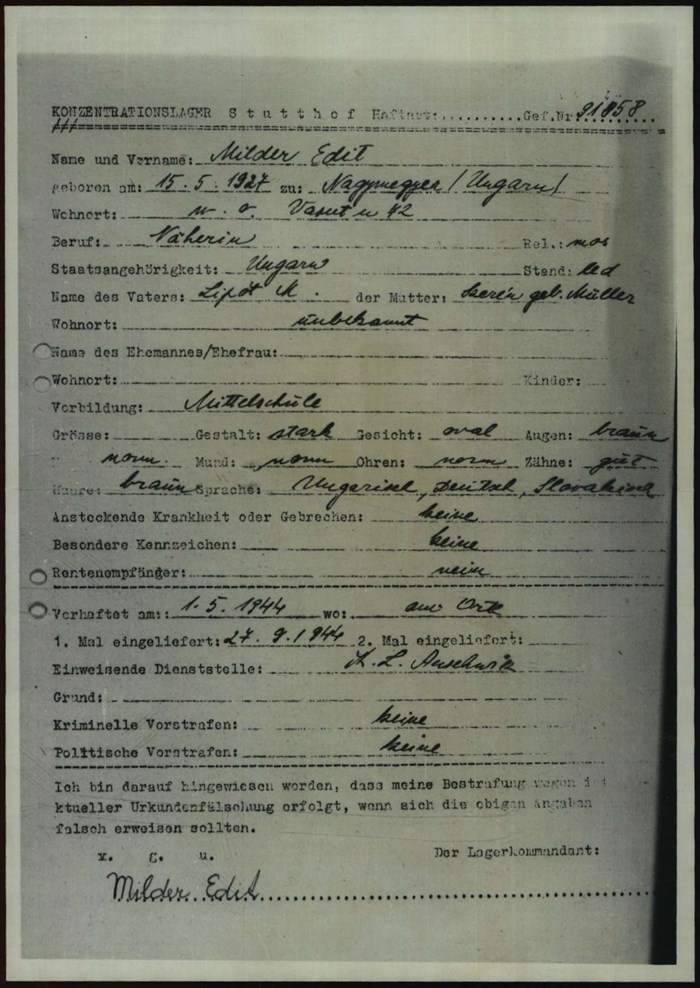 KONZENTRATIONSLAGER Stutthof Haftart: Gef.Nr. 91858
Name und Vorname: Milder Edit
geboren am: 15.5.1927 zu: Nagymegyer /Ungarn/
Wohnort: w. o. Vasut u 42
Beruf: Näherin Rel.: mos
Staatsangehörigkeit: Ungarn Stand: led
Name des Vaters: Lipót M. der Mutter: Szerén geb. Müller
Wohnort: unbekannt
Name des Ehemannes/Ehefrau:
Wohnort: Kinder:
Vorbildung: Mittelschule
Grösse: Gestalt: stark Gesicht: oval Augen: braun
norm. Mund: norm Ohren: norm Zähne: gut
Haare: braun Sprache: Ungarisch, Deutsch, Slovakisch
Ansteckende Krankheit oder Gebrechen: keine
Besondere Kennzeichen: keine
Rentenempfänger: nein
Verhaftet am: 1.5.1944 wo: am Orte
1. Mal eingeliefert: 27.9.1944 2. Mal eingeliefert:
Einweisende Dienststelle: K. L. Auschwitz
Grund:
Kriminelle Vorstrafen: keine
Politische Vorstrafen: keine
Ich bin darauf hingewiesen worden, dass meine Bestrafung wegen
ktueller Urkundenfälschung erfolgt, wenn sich die obigen Angaben
falsch erweisen sollten.
v. g. u. Der Lagerkommandant:
Milder Edit